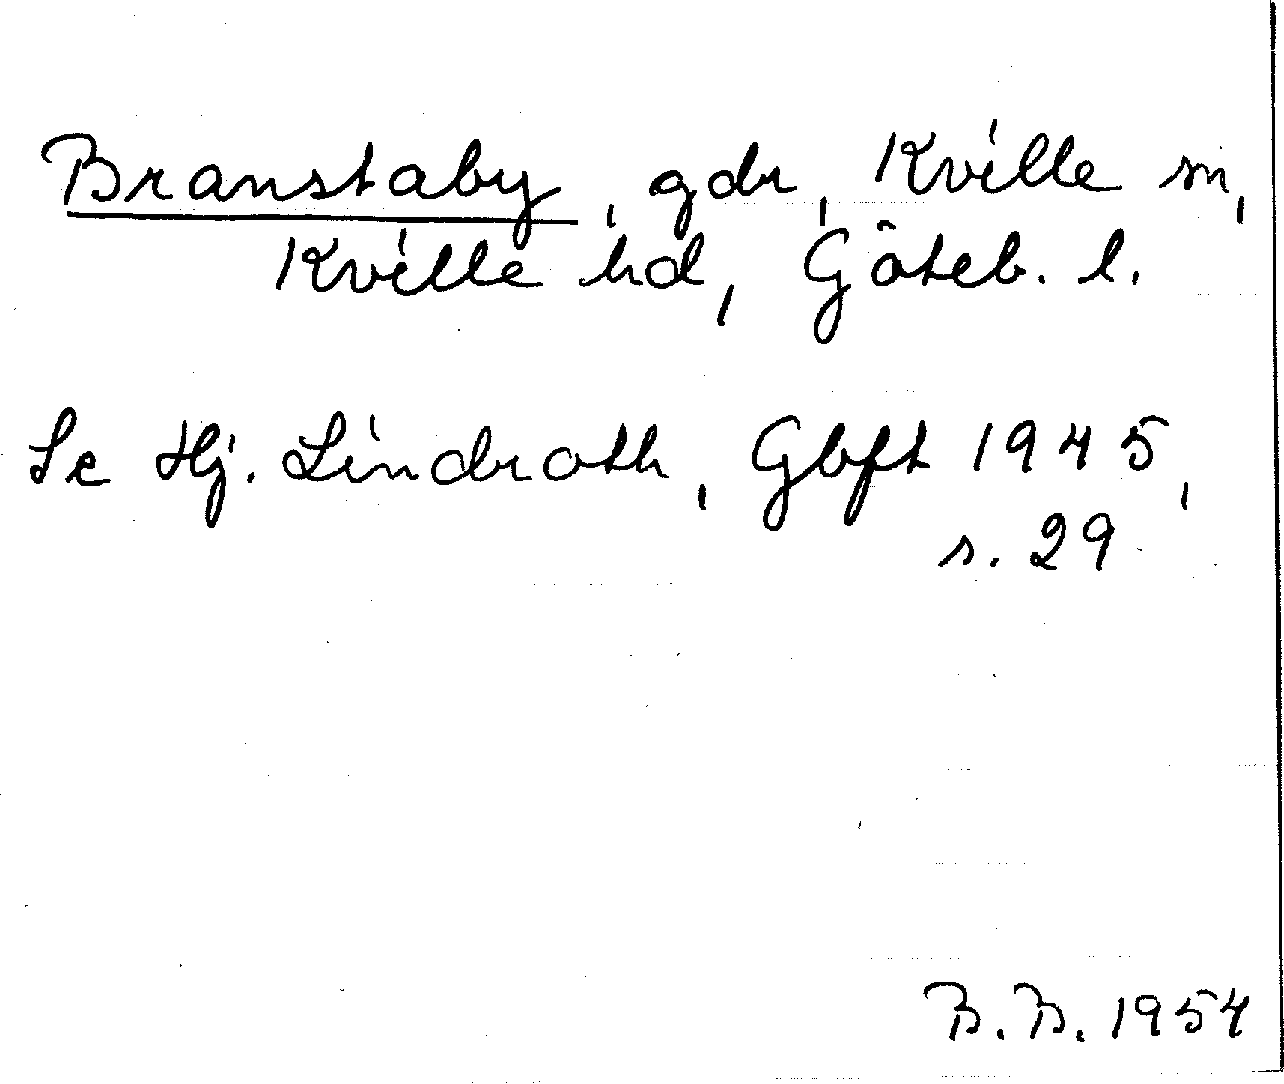 Branstaby, gdr, Kville sn,
Kville hd, Göteb. l.
Se Hj. Lindroth, Gbft 1945,
s. 29
B.B. 1954